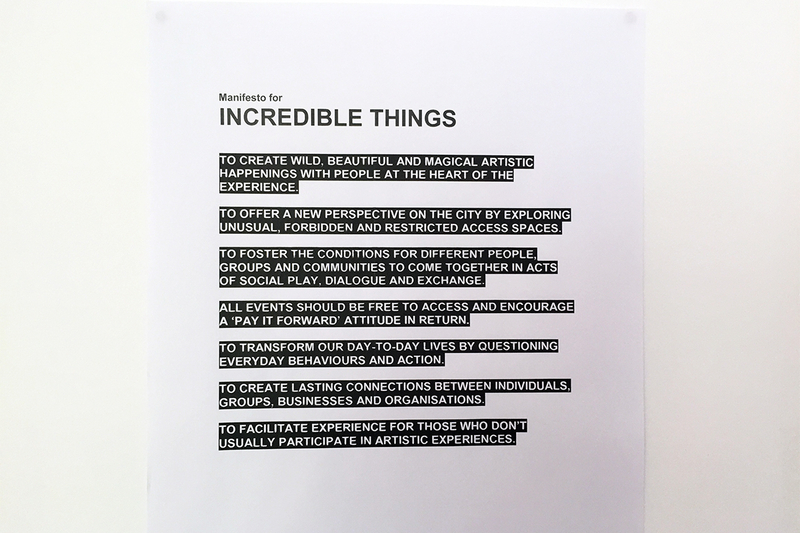 Manifesto for
INCREDIBLE THINGS
TO CREATE WILD, BEAUTIFUL AND MAGICAL ARTISTIC
HAPPENINGS WITH PEOPLE AT THE HEART OF THE
EXPERIENCE.
TO OFFER A NEW PERSPECTIVE ON THE CITY BY EXPLORING
UNUSUAL, FORBIDDEN AND RESTRICTED ACCESS SPACES.
TO FOSTER THE CONDITIONS FOR DIFFERENT PEOPLE,
GROUPS AND COMMUNITIES TO COME TOGETHER IN ACTS
OF SOCIAL PLAY, DIALOGUE AND EXCHANGE.
ALL EVENTS SHOULD BE FREE TO ACCESS AND ENCOURAGE
A ‘PAY IT FORWARD’ ATTITUDE IN RETURN.
TO TRANSFORM OUR DAY-TO-DAY LIVES BY QUESTIONING
EVERYDAY BEHAVIOURS AND ACTION.
TO CREATE LASTING CONNECTIONS BETWEEN INDIVIDUALS,
GROUPS, BUSINESSES AND ORGANISATIONS.
TO FACILITATE EXPERIENCE FOR THOSE WHO DON’T
USUALLY PARTICIPATE IN ARTISTIC EXPERIENCES.